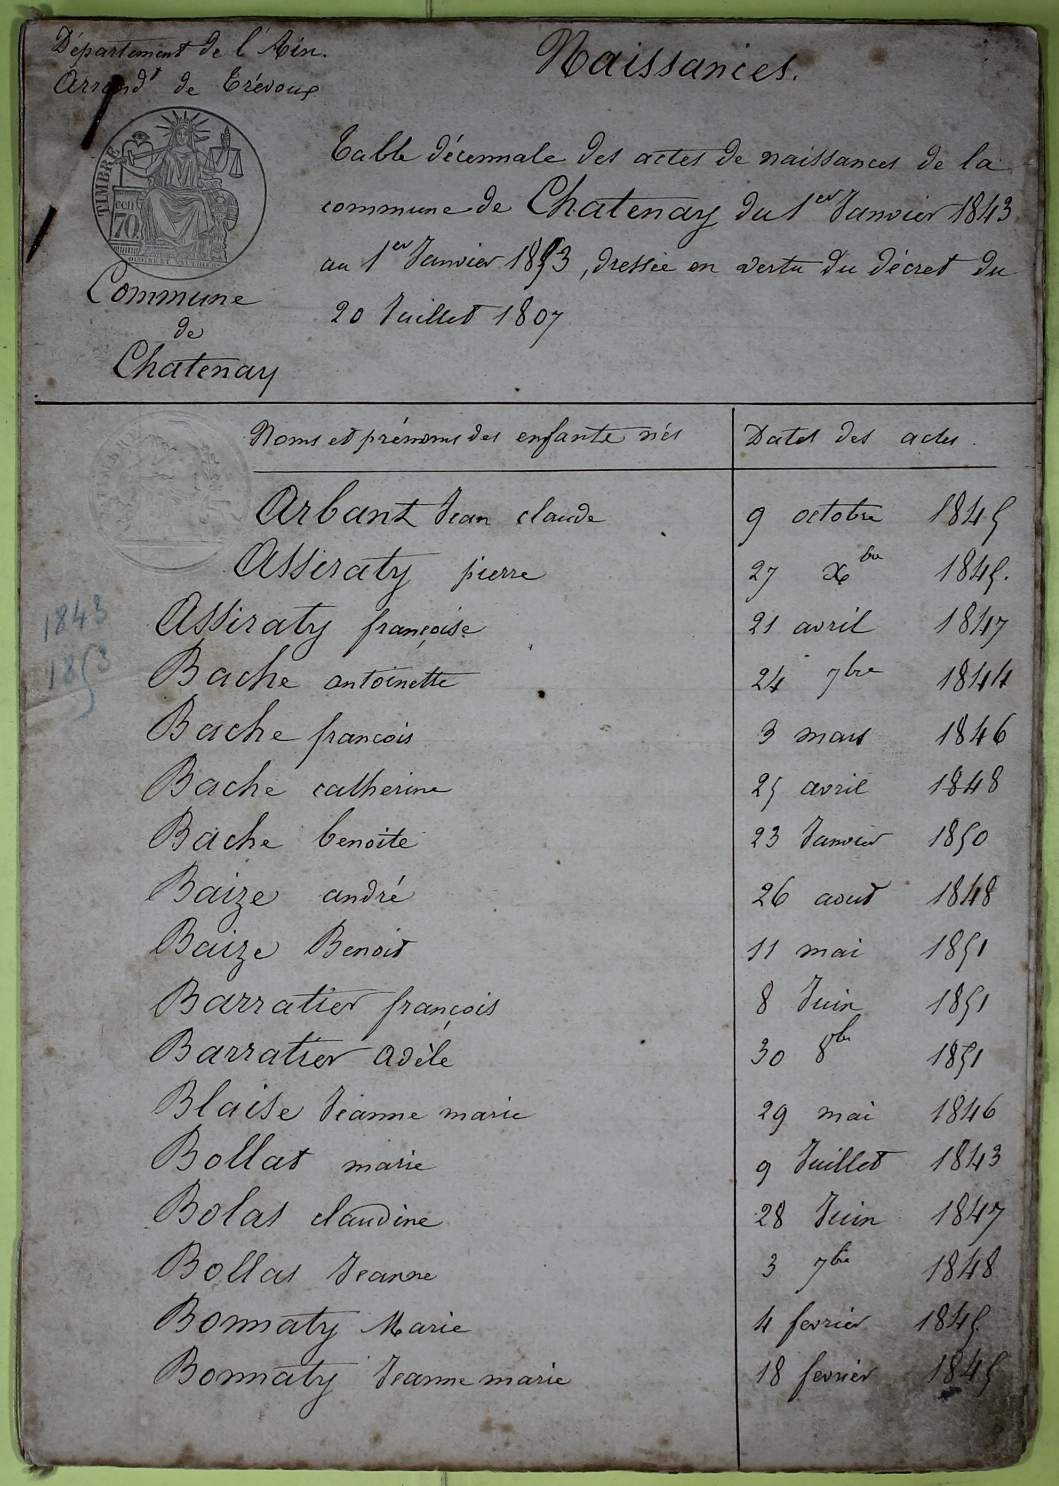 Département de l'Ain.
Arrond^t de Trévoux
Naissances.
TIMBRE
cen
70
Commune
de
Chatenay
Table décennale des actes de naissances de la
commune de Chatenay du 1^er Janvier 1843
au 1^er Janvier 1853, dressée en vertu du décret du
20 Juillet 1807
Noms et prénoms des enfants nés Dates des actes.
1843
1853
Arbant Jean claude 9 octobre 1845
Assiraty pierre 27 X^bre 1845.
Assiraty françoise 21 avril 1847
Bache antoinette 24 7^bre 1844
Bache francois 3 mars 1846
Bache catherine 25 avril 1848
Bache benoite 23 Janvier 1850
Baize andré 26 aout 1848
Baize Benoit 11 mai 1851
Barratier françois 8 Juin 1851
Barratier adèle 30 8^bre 1851
Blaise Jeanne marie 29 mai 1846
Bollat marie 9 Juillet 1843
Bolas claudine 28 Juin 1847
Bollas Jeanne 3 7^bre 1848
Bonnaty Marie 4 fevrier 1845
Bonnaty Jeanne marie 18 fevrier 1845